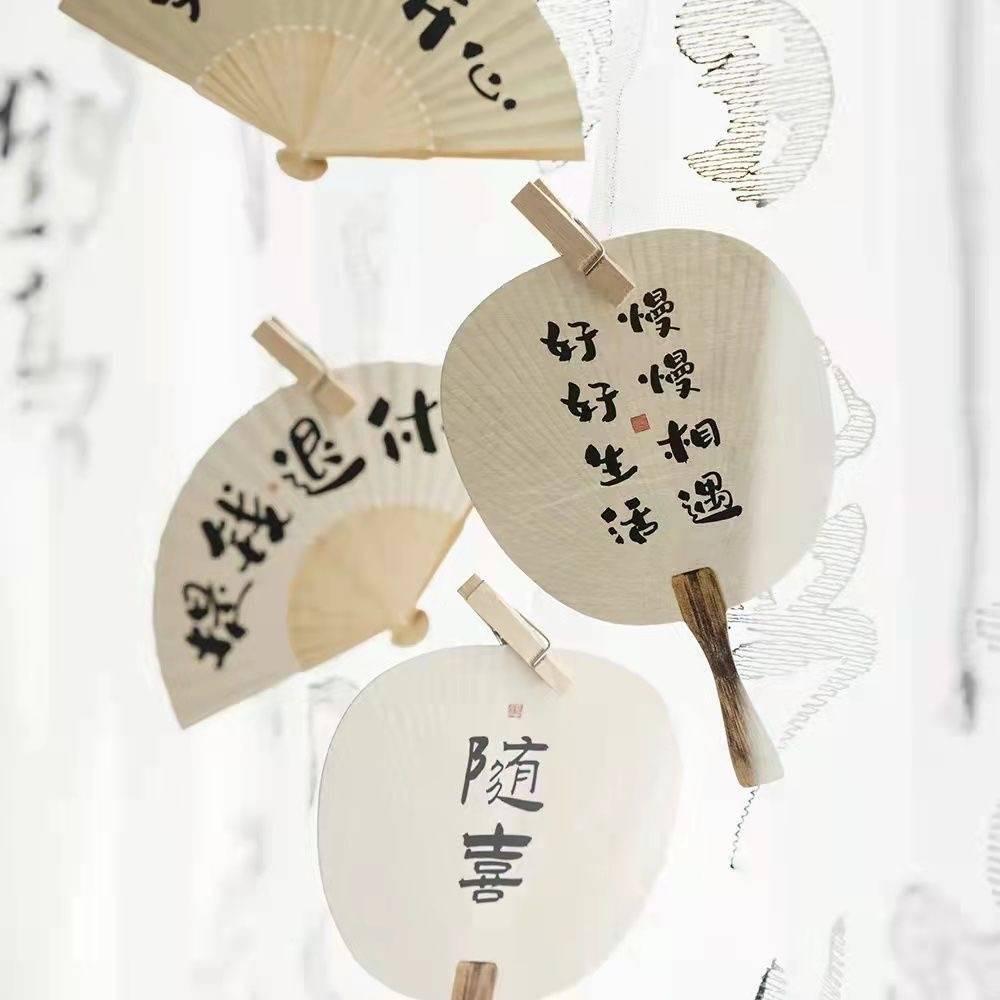 开心
提钱退休
慢慢相遇
好好生活
随喜